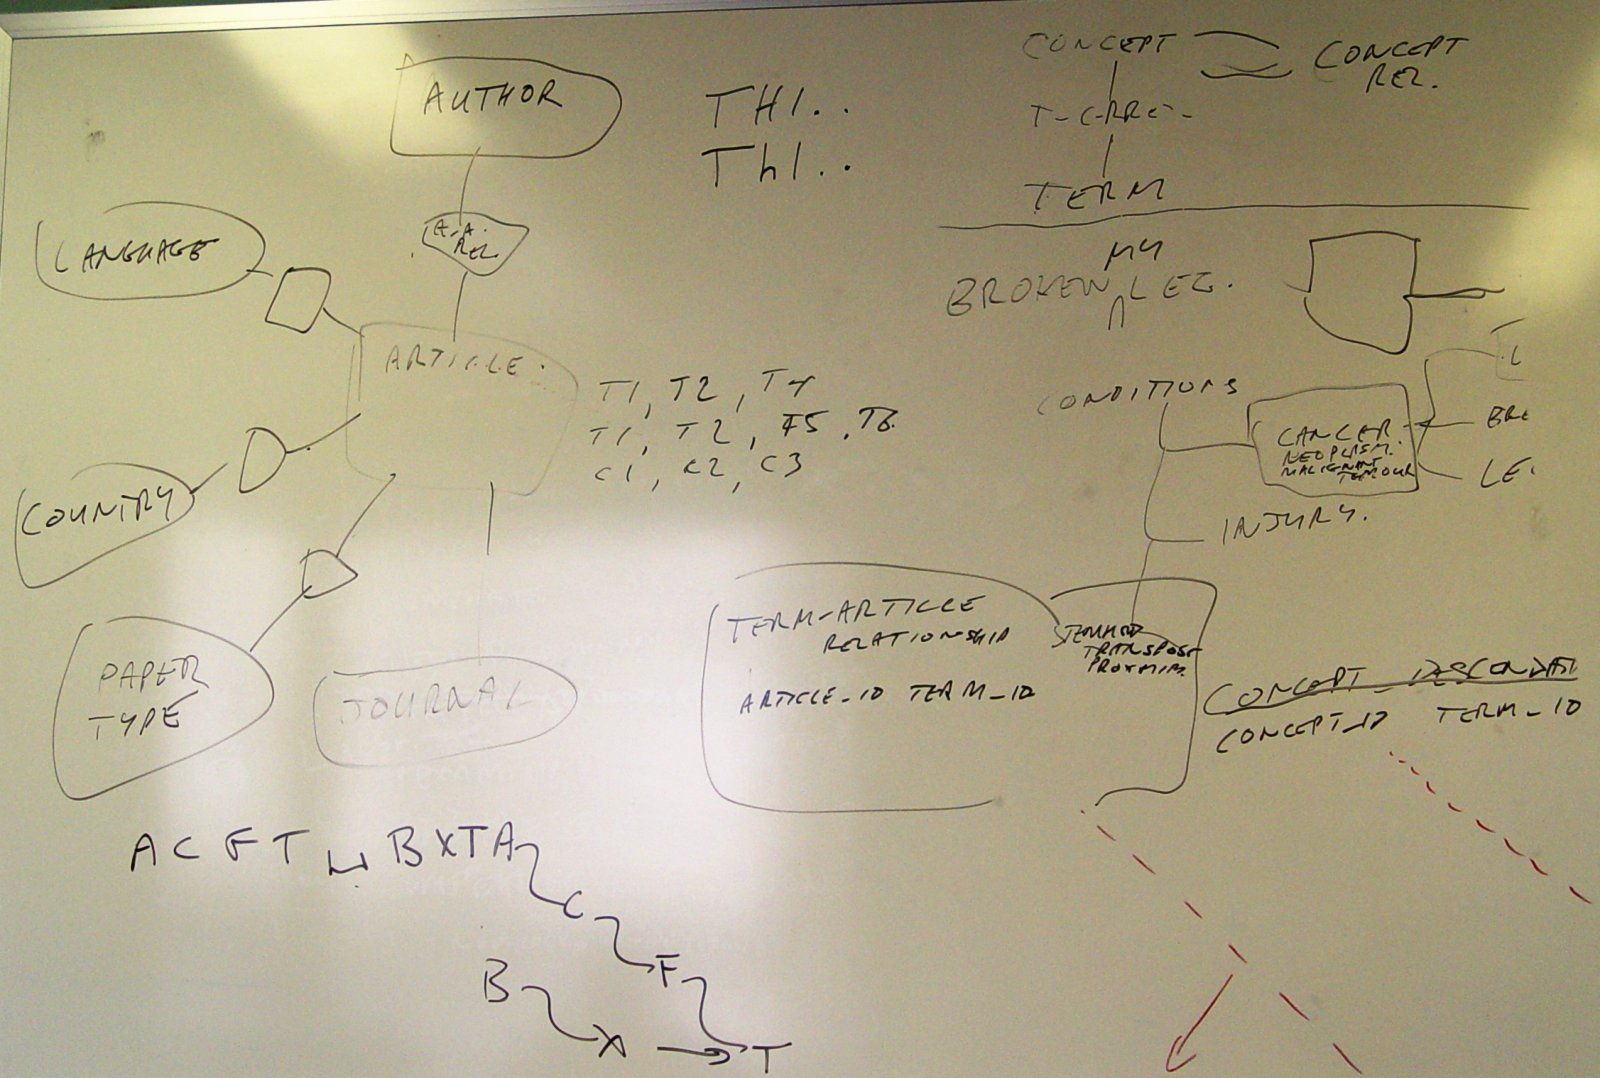 AUTHOR
A.A.
REL.
LANGUAGE
ARTICLE.
COUNTRY
PAPER
TYPE
JOURNAL
THI..
ThI..
T1, T2, T4
T1, T2, F5, T6.
C1, C2, C3
CONCEPT
CONCEPT
REL.
TERM
MY
BROKEN LEG.
CONDITIONS
CANCER.
NEOPLASM.
MALIGNANT
TUMOUR
L
BRE
LE
INJURY.
TERM-ARTICLE
RELATIONSHIP
ARTICLE_ID TERM_ID
STEMMED
TRANSPOSE
PROXIMIM.
CONCEPT_
CONCEPT_ID TERM_ID
ACFT BXTA
C
F
B
X
T